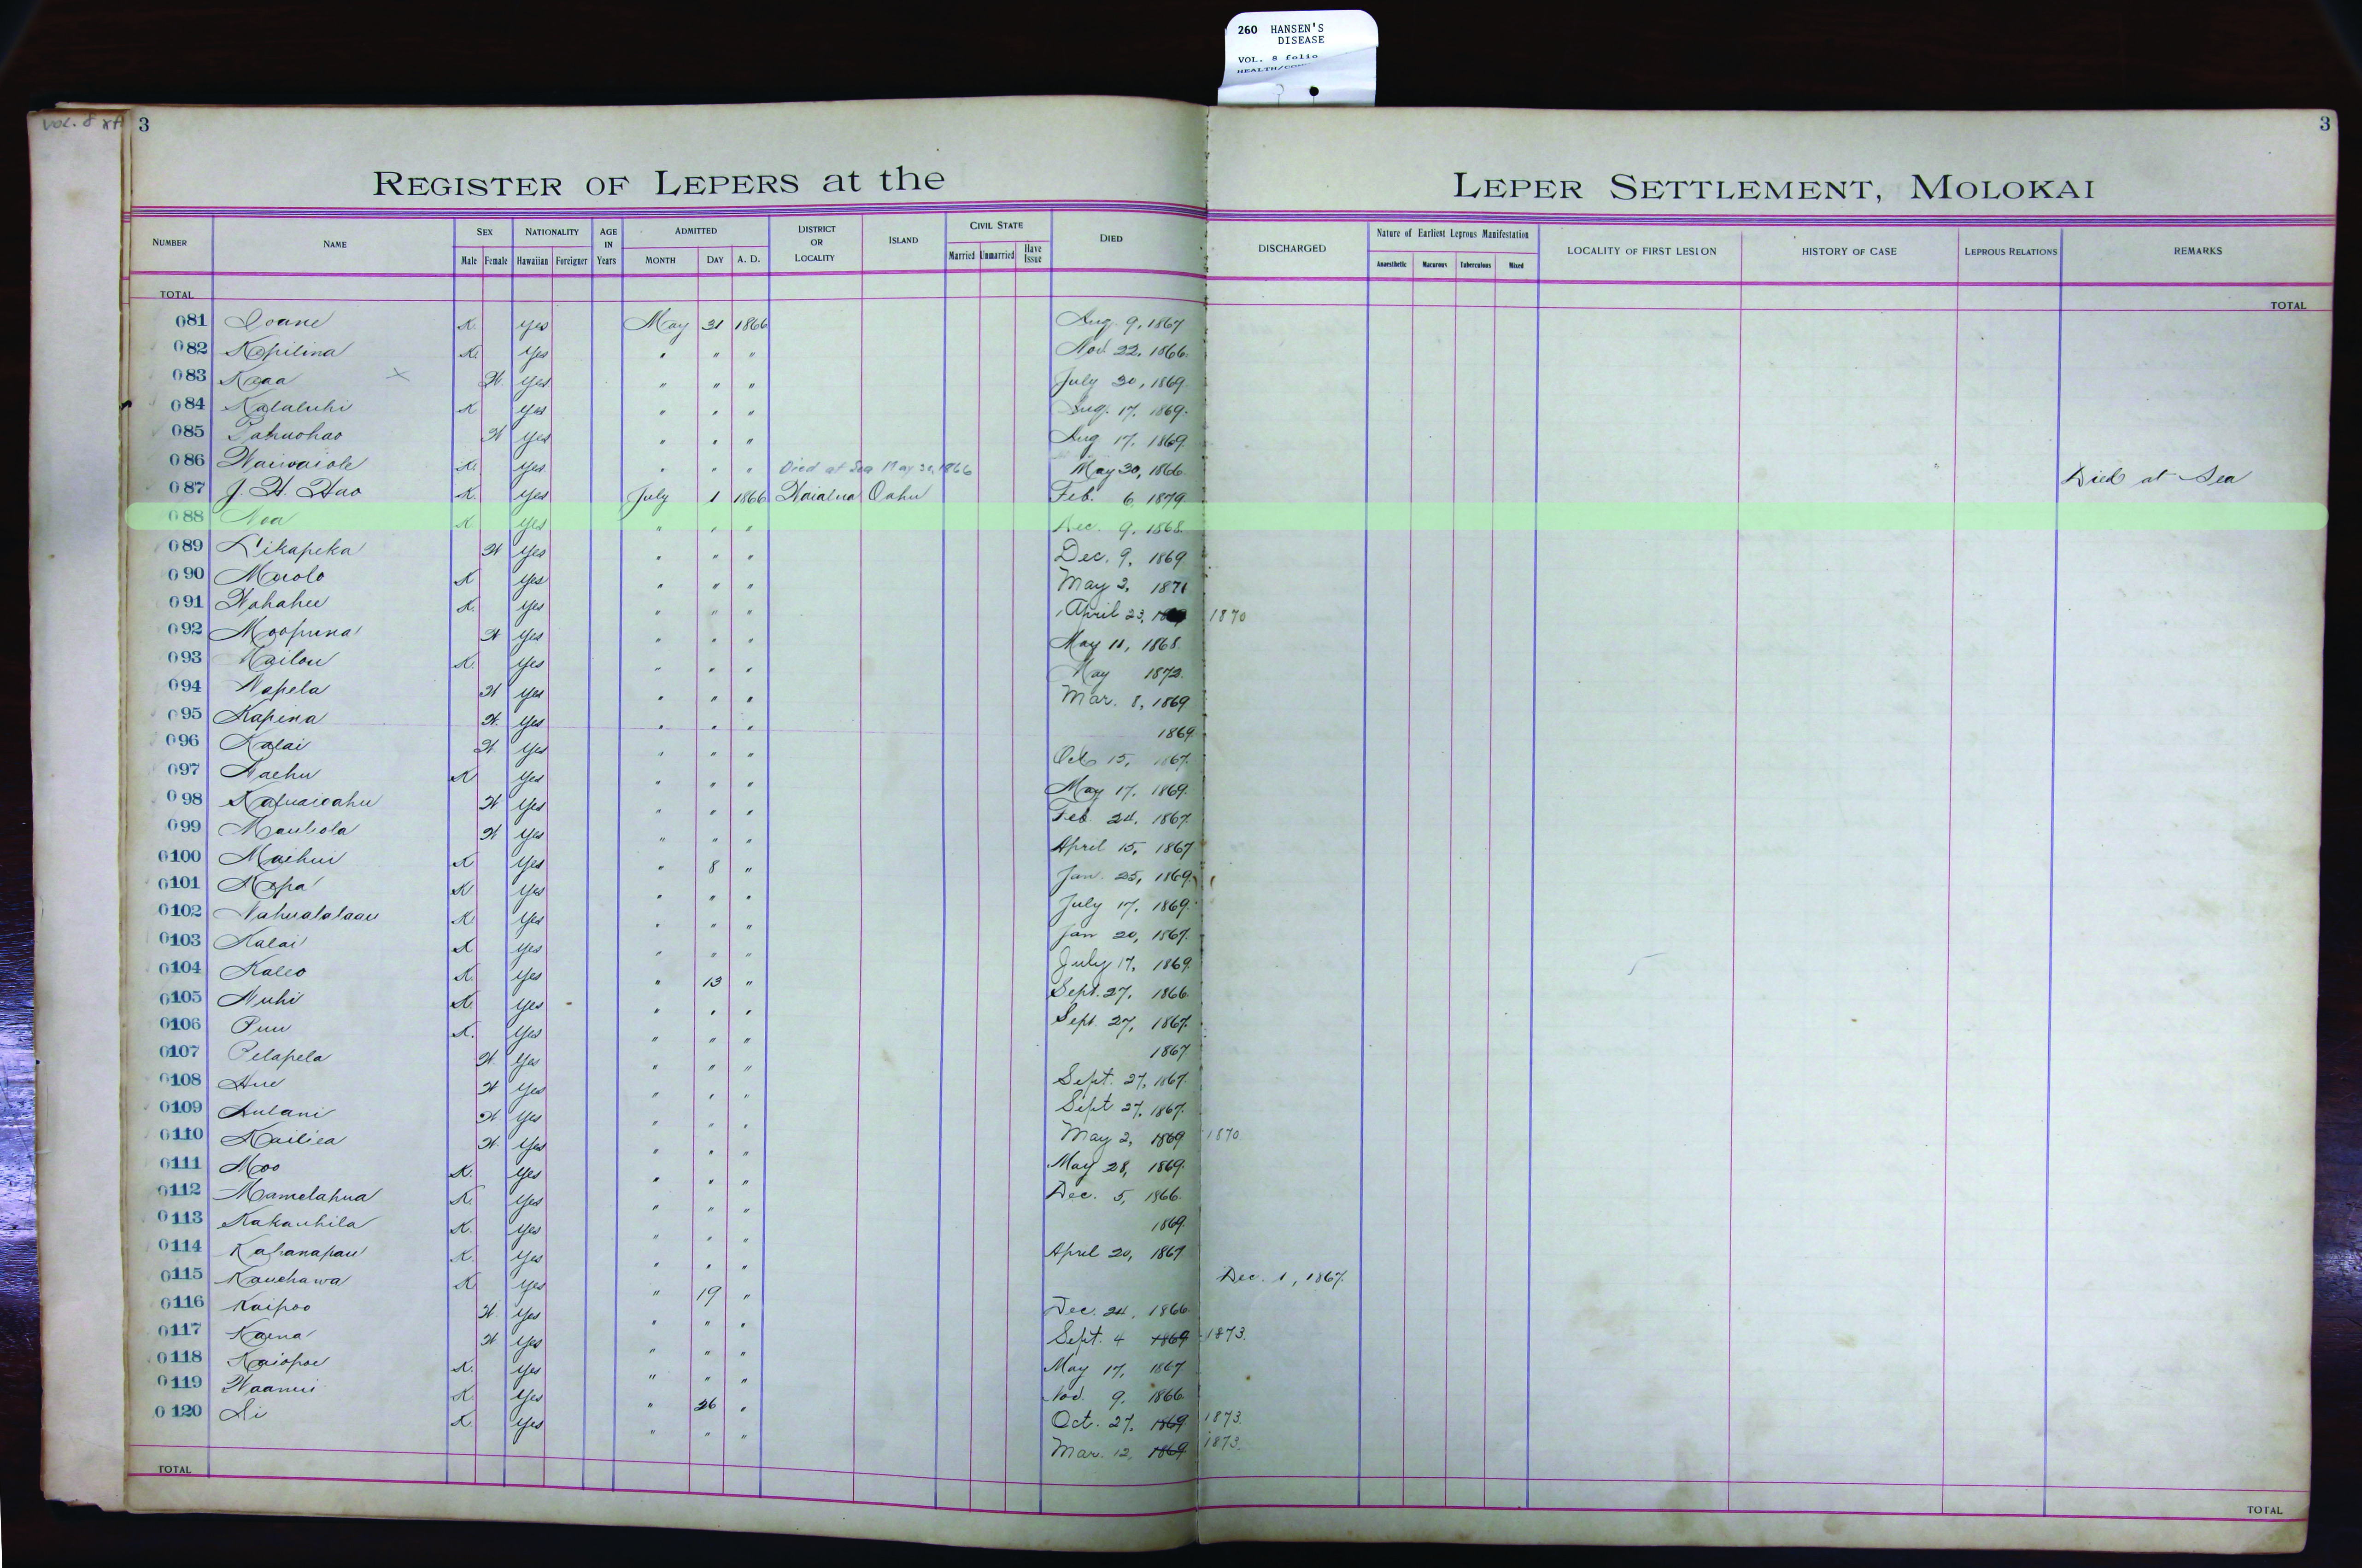 260 HANSEN'S
DISEASE
VOL. 8 folio
VOL. 8
3
3
REGISTER OF LEPERS at the LEPER SETTLEMENT, MOLOKAI
NUMBER NAME SEX Male Female NATIONALITY Hawaiian Foreigner AGE IN Years ADMITTED MONTH DAY A. D. DISTRICT OR LOCALITY ISLAND CIVIL STATE Married Unmarried Have Issue DIED DISCHARGED Nature of Earliest Leprous Manifestation Anaesthetic Macurous Tuberculous Mixed LOCALITY OF FIRST LESION HISTORY OF CASE LEPROUS RELATIONS REMARKS
TOTAL TOTAL
081 Ioane K. yes May 31 1866 Aug. 9, 1867
082 Kapilina K. Yes " " " Nov. 22, 1866.
083 Kaaa × W. yes " " " July 30, 1869.
084 Kalaluhi K yes " " " Aug. 17, 1869.
085 W Yes " " " Aug 17, 1869.
086 Waiwaiole K. Yes " " " Died at Sea May 30, 1866 May 30, 1866. Died at Sea
087 J. H. Hao K. Yes July 1 1866 Waialua Oahu Feb. 6, 1879
088 Noa K yes " " " Dec. 9, 1868.
089 Likapeka W yes " " " Dec. 9, 1869
090 Maolo K Yes " " " May 2, 1871
091 Wahahee K. Yes " " " April 23, 1870
092 Moopuna W yes " " " May 11, 1868.
093 Kailou K. Yes " " " May 1872.
094 Napela W yes " " " Mar. 8, 1869
095 Kapina W. Yes " " " 1869.
096 Kalai W Yes " " " Oct 15, 1867.
097 Naehu K Yes " " " May 17, 1869.
098 W Yes " " " Feb. 24, 1867.
099 Mauliola W Yes " " " April 15, 1867
0100 Maihui K Yes " 8 " Jan. 25, 1869.
0101 Napa K Yes " " " July 17, 1869.
0102 Nahualalaau K. Yes " " " Jan 20, 1867.
0103 Kalai K Yes " " " July 17, 1869.
0104 Kaleo K. Yes " 13 " Sept. 27, 1866.
0105 Nuhi K. Yes " " " Sept. 27, 1867.
0106 Puu K. Yes " " " 1867
0107 Pelapela W Yes " " " Sept. 27, 1867.
0108 Hue W Yes " " " Sept 27, 1867.
0109 Aulani W. Yes " " " May 2, 1869 1870.
0110 Kailiea W. Yes " " " May 28, 1869.
0111 Moo K. Yes " " " Dec. 5, 1866.
0112 Mamelahua K. Yes " " " 1869.
0113 Kakauhila K. Yes " " " April 20, 1867
0114 Kahanapau K. Yes " " " Dec. 1, 1867.
0115 Kauehawa K Yes " 19 " Dec. 24, 1866.
0116 Kaipoo W. Yes " " " Sept. 4 1869 1873.
0117 Kaena W Yes " " " May 17, 1867
0118 Kaiopoe K. Yes " " " Nov. 9, 1866.
0119 Waanui K. Yes " 26 " Oct. 27, 1869 1873.
0120 Ai K. Yes " " " Mar. 12, 1869 1873.
TOTAL TOTAL